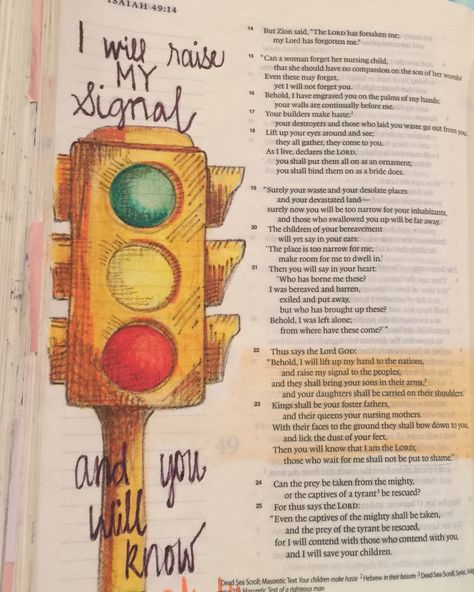 ISAIAH 49:14
I will raise
MY
signal
and you
will
know
14 But Zion said, “The LORD has forsaken me;
my Lord has forgotten me.”
15 “Can a woman forget her nursing child,
that she should have no compassion on the son of her womb?
Even these may forget,
yet I will not forget you.
16 Behold, I have engraved you on the palms of my hands;
your walls are continually before me.
17 Your builders make haste;¹
your destroyers and those who laid you waste go out from you.
18 Lift up your eyes around and see;
they all gather, they come to you.
As I live, declares the LORD,
you shall put them all on as an ornament;
you shall bind them on as a bride does.
19 “Surely your waste and your desolate places
and your devastated land—
surely now you will be too narrow for your inhabitants,
and those who swallowed you up will be far away.
20 The children of your bereavement
will yet say in your ears:
‘The place is too narrow for me;
make room for me to dwell in.’
21 Then you will say in your heart:
‘Who has borne me these?
I was bereaved and barren,
exiled and put away,
but who has brought up these?
Behold, I was left alone;
from where have these come?’”
22 Thus says the Lord GOD:
“Behold, I will lift up my hand to the nations,
and raise my signal to the peoples;
and they shall bring your sons in their arms,²
and your daughters shall be carried on their shoulders.
23 Kings shall be your foster fathers,
and their queens your nursing mothers.
With their faces to the ground they shall bow down to you,
and lick the dust of your feet.
Then you will know that I am the LORD;
those who wait for me shall not be put to shame.”
24 Can the prey be taken from the mighty,
or the captives of a tyrant³ be rescued?
25 For thus says the LORD:
“Even the captives of the mighty shall be taken,
and the prey of the tyrant be rescued,
for I will contend with those who contend with you,
and I will save your children.
Dead Sea Scroll; Masoretic Text Your children make haste ² Hebrew in their bosom ³ Dead Sea Scroll, Syriac,
Masoretic Text of a righteous man